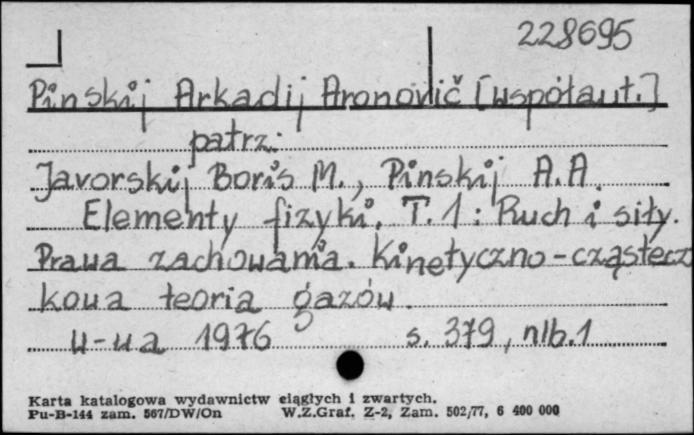 228695
Pinskij Arkadij Aronovič [współaut.]
patrz:
Javorskij Boris M., Pinskij A.A.
Elementy fizyki. T.1: Ruch i siły.
Prawa zachowania. Kinetyczno-cząstecz
kowa teoria gazów.
W-wa 1976 s. 379, nlb.1
Karta katalogowa wydawnictw ciągłych i zwartych.
Pu-B-144 zam. 567/DW/On W.Z.Graf. Z-2, Zam. 502/77, 6 400 000